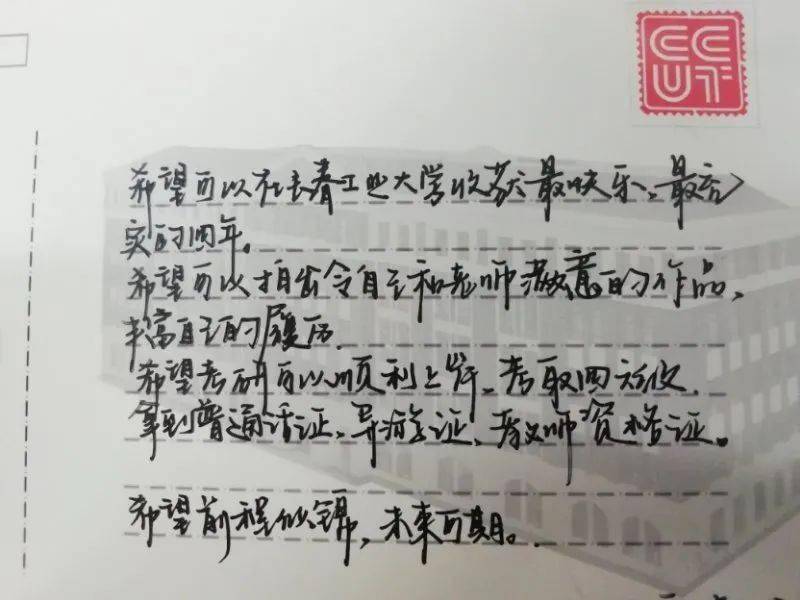 CC
UT
希望可以在长春工业大学收获最快乐、最充
实的四年。
希望可以拍出令自己和老师满意的作品,
丰富自己的履历.
希望考研可以顺利上岸、考取四六级.
拿到普通话证、导游证、教师资格证。
希望前程似锦,未来可期。